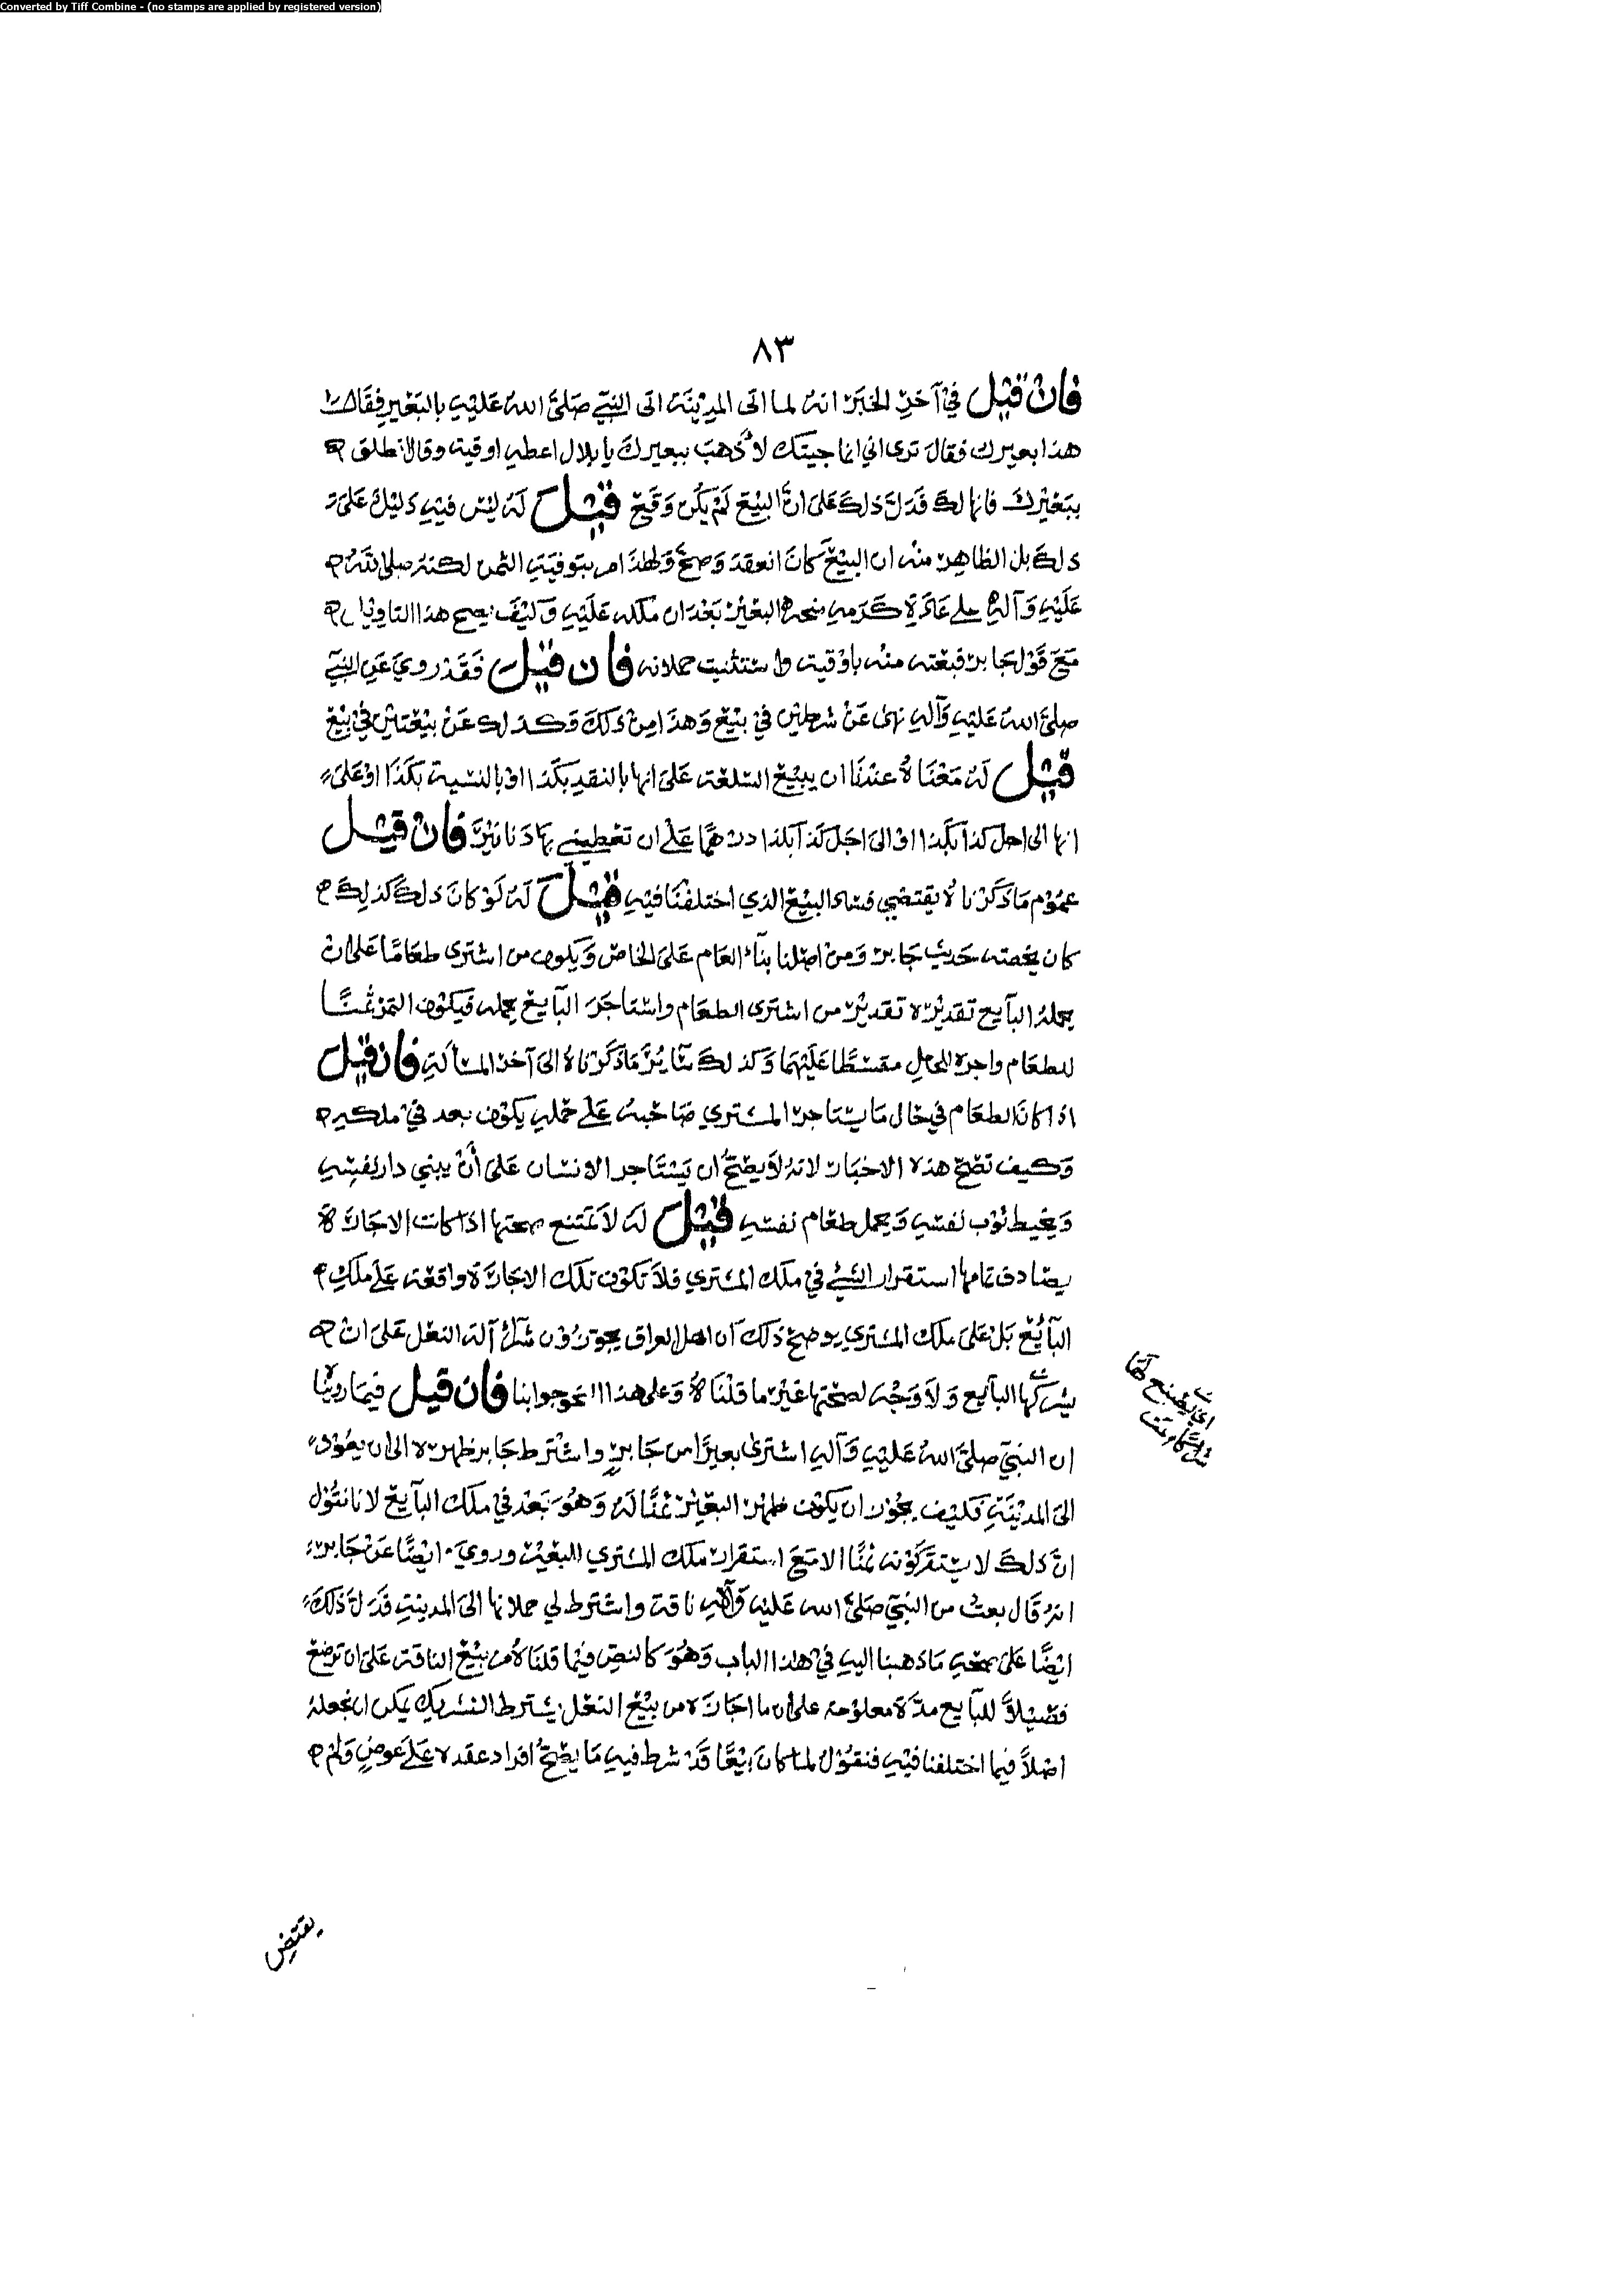 Converted by Tiff Combine - (no stamps are applied by registered version)
٨٣
فان قيل في آخر الخبر انه لما اتى المدينة اتى النبي صلى الله عليه بالبعير فقال
هذا بعيرك فقال ترى اني انما جيتك لاذهب ببعيرك يا بلال اعطه اوقية وقال انطلق
ببعيرك فانها لك فدل ذلك على ان البيع لم يكن وقع قيل له ليس فيه دليل على
ذلك بل الظاهر منه ان البيع كان انعقد وصح ولهذا امر بتوفية الثمن لكنه صلى الله
عليه وآله على عادة كرمه منحه البعير بعد ان ملكه عليه وكيف يصح هذا التاويل
مع قول جابر فبعته منه باوقية واستثنيت حملانه فان قيل فقد روي عن النبي
صلى الله عليه وآله نهى عن شرطين في بيع وهذا من ذلك وكذلك عن بيعتين في بيع
قيل له معناه عندنا ان يبيع السلعة على انها بالنقد بكذا او بالنسية بكذا او على
انها الى اجل كذا بكذا او الى اجل كذا بكذا درهما على ان تعطيني بها دنانير فان قيل
عموم ما ذكرنا لا يقتضي فساد البيع الذي اختلفنا فيه قيل له لو كان ذلك كذلك
كان يخصه حديث جابر ومن اصلنا بناء العام على الخاص ويكون من اشترى طعاما على ان
يحمله البايع تقديره تقدير من اشترى الطعام واستاجر البايع بحمله فيكون الثمن ثمنا
للطعام واجرة للحامل مقسطا عليهما وكذلك ساير ما ذكرناه الى آخر المسألة فان قيل
اذا كان الطعام في حال ما يستاجر المشتري صاحبه على حمله يكون بعد في ملكه
وكيف تصح هذه الاخبار لانه لا يصح ان يستاجر الانسان على أن يبني دار نفسه
ويخيط ثوب نفسه ويحمل طعام نفسه قيل له لا تمتنع صحتها اذا كانت الاجارة
يصادف تمامها استقرار الشيء في ملك المشتري فلا تكون تلك الاجارة واقعة على ملك
البائع بل على ملك المشتري يوضح ذلك ان اهل العراق يجوزون شراء آلة النعل على ان
يشركها البايع ولا وجه لصحتها غير ما قلناه وعلى هذا نحو جوابنا فان قيل فيما روينا
ان النبي صلى الله عليه وآله اشترى بعيرا من جابر واشترط جابر ظهره الى ان يعود
الى المدينة فكيف يجوز ان يكون ظهر البعير ثمنا له وهو بعد في ملك البايع لانا نقول
ان ذلك لا يستقر كونه ثمنا الا مع استقرار ملك المشتري للبعير وروي ايضا عن جابر
انه قال بعت من النبي صلى الله عليه وآله ناقة واشترط لي حملانها الى المدينة فدل ذلك
ايضا على صحة ما ذهبنا اليه في هذا الباب وهو كالنص فيما قلناه من بيع الناقة على ان ترضع
فصيلا للبايع مدة معلومة على ان ما اجازه من بيع النعل بشرط التشريك يمكن ان نجعله
اصلا فيما اختلفنا فيه فنقول لما كان بيعا قد شرط فيه ما يصح افراد عقده على عوض ولم
اي يصنع لها
يقتض